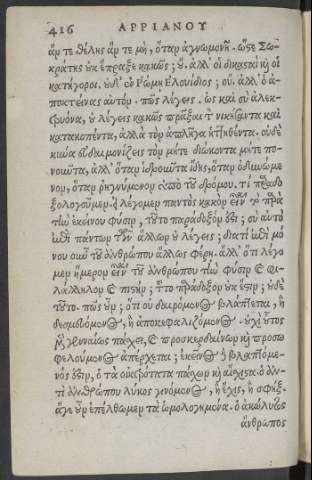 416 ΑΡΡΙΑΝΟΥ
ἄν τε θέλῃς ἄν τε μὴ, ὅταν ἀγνωμονῇ. ὥστε Σω-
κράτης οὐκ ἔπραξε κακῶς; οὔ. ἀλλ' οἱ δικασταὶ καὶ οἱ
κατήγοροι. οὐδ' ἐν Ῥώμῃ Ελουίδιος; οὔ. ἀλλ' ὁ ἀ-
ποκτείνας αὐτόν. πῶς λέγεις; ὡς καὶ σὺ ἀλεκ-
τρυόνα, οὐ λέγεις κακῶς πρᾶξαι τὸν νικήσαντα καὶ
κατακοπέντα, ἀλλὰ τὸν ἀπλῆγα ἡττηθέντα. οὐδὲ
κύνα εὐδαιμονίζεις τὸν μήτε διώκοντα μήτε πο-
νοῦντα, ἀλλ' ὅταν ἱδροῦντα ἴδῃς, ὅταν ὀδυνώμε-
νον, ὅταν ῥηγνύμενον ὑπὸ τοῦ δρόμου. τί παραδο-
ξολογοῦμεν. ἢ λέγομεν παντὸς κακὸν εἶναι τὸ παρὰ
τὴν ἐκείνου φύσιν, τοῦτο παράδοξόν ἐστι; σὺ αὐτὸ
ἐπὶ πάντων τῶν ἄλλων οὐ λέγεις; διατί ἐπὶ μό-
νου οὖν τοῦ ἀνθρώπου ἄλλως φέρῃ. ἀλλ' ὅτι λέγο-
μεν ἥμερον εἶναι τοῦ ἀνθρώπου τὴν φύσιν καὶ φι-
λάλληλον καὶ πιστὴν, τοῦτο παράδοξον οὐκ ἔστιν; οὐδὲ
τοῦτο. πῶς οὖν; ὅτι οὐ δαιρόμενος βλάπτεται, ἢ
δεσμευόμενος, ἢ ἀποκεφαλιζόμενος. οὐχὶ οὕτως
μὲν γενναίως πάσχει, καὶ προσκερδαίνων καὶ προσω
φελούμενος ἀπέρχεται; ἐκεῖνος δὲ βλαπτόμε-
νός ἐστιν, ὁ τὰ οἰκτρότατα πάσχων καὶ αἴσχιστα. ὁ ἀν-
τὶ ἀνθρώπου λύκος γινόμενος, ἢ ἔχις, ἢ σφήξ.
ἄγε οὖν ἐπέλθωμεν τὰ ὡμολογημένα. ὁ ἀκώλυτος
ἄνθρωπος